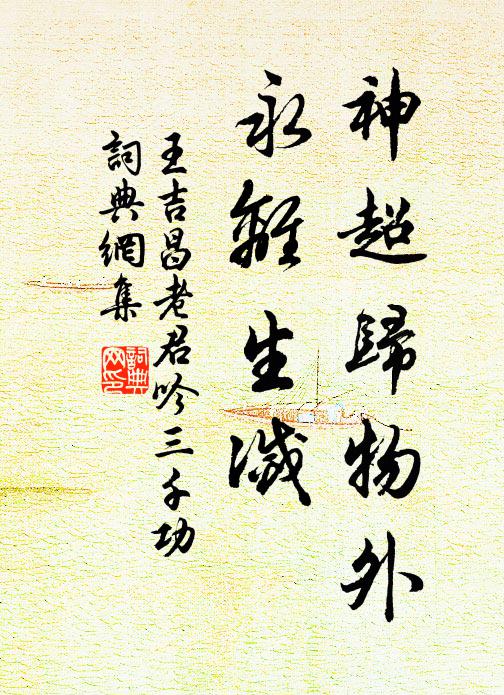 神超歸物外
永離生滅
王吉昌老君吟三千功
詞典網集
詞典网印